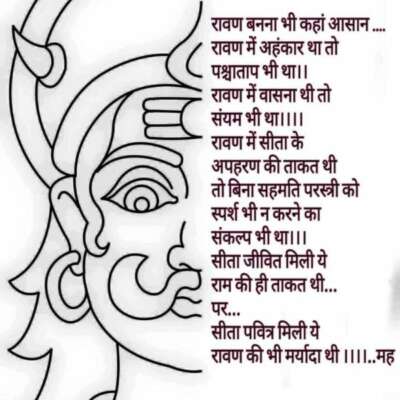 रावण बनना भी कहां आसान ....
रावण में अहंकार था तो
पश्चाताप भी था।।
रावण में वासना थी तो
संयम भी था।।।।
रावण में सीता के
अपहरण की ताकत थी
तो बिना सहमति परस्त्री को
स्पर्श भी न करने का
संकल्प भी था।।।
सीता जीवित मिली ये
राम की ही ताकत थी...
पर...
सीता पवित्र मिली ये
रावण की भी मर्यादा थी ।।।।..मह